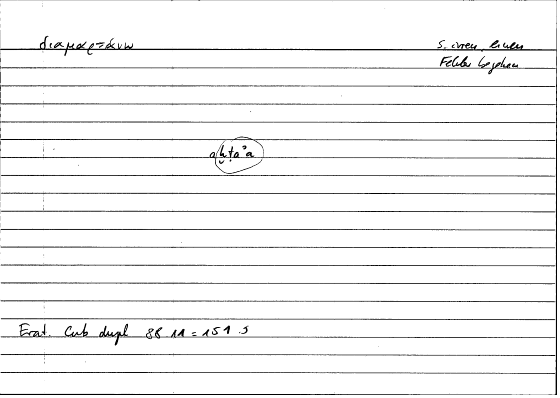 διαμαρτάνω
s. irren, einen
Fehler begehen
aḫṭaʾa
Erat. Cub dupl 88 11 = 151 5